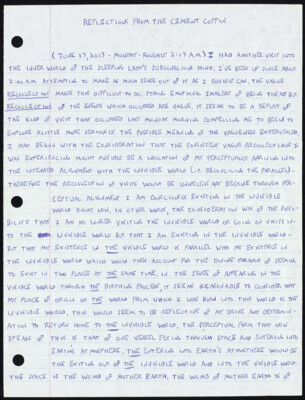 REFLECTIONS FROM THE CEMENT COFFIN
(JUNE 17, 2013 - MONDAY - ROUGHLY 3:17 A.M.) I HAD ANOTHER VISIT INTO
THE INNER WORLD OF THE SLEEPING LADY'S SUBCONSCIOUS MIND. I'VE BEEN UP SINCE ABOUT
2:00 A.M. ATTEMPTING TO MAKE AS MUCH SENSE OUT OF IT AS I POSSIBLE CAN. THE VAGUE
RECOLLECTION MAKES THIS DIFFICULT TO DO. STRONG EMOTIONAL IMAGERY OF BEING THERE BUT
RECOLLECTION OF THE EVENTS WHICH OCCURRED ARE VAGUE. IT SEEMS TO BE A REPLAY OF
THE KIND OF VISIT THAT OCCURRED LAST MONDAY MORNING COMPELLING ME TO BEGIN TO
EXPLORE A LITTLE MORE SERIOUSLY THE POSSIBLE MEANING OF THE VAGUENESS EXPERIENCED.
I HAD BEGUN WITH THE CONSIDERATION THAT THE COGNITIVE VAGUE RECOLLECTIONS I
WAS EXPERIENCING MIGHT POSSIBLY BE A INDICATION OF MY PERCEPTUALLY ARRIVING INTO
THE INTENDED ALIGNMENT WITH THE INVISIBLE WORLD (I.E. RECONCILING THE PARALLELS).
THEREFORE THE RECOLLECTION OF VISITS WOULD BE USELESS BECAUSE THROUGH PER-
CEPTUAL ALIGNMENT I AM CONSCIOUSLY EXISTING IN THE INVISIBLE
WORLD RIGHT NOW. IN OTHER WORDS, THE CONSIDERATION WAS OF THE POSSI-
BILITY THAT I AM NO LONGER VISITING THE INVISIBLE WORLD OR GOING ON VISITS IN-
TO THE INVISIBLE WORLD BUT THAT I AM EXISTING IN THE INVISIBLE WORLD.
BUT THAT MY EXISTENCE IN THE VISIBLE WORLD IS PARALLEL WITH MY EXISTENCE IN
THE INVISIBLE WORLD WHICH WOULD THEN ACCOUNT FOR THE DIVINE PARADOX OF SEEMING
TO EXIST IN TWO PLACES AT THE SAME TIME. IN THE SENSE OF APPEARING IN THE
VISIBLE WORLD THROUGH THE IT SEEMS REASONABLE TO CONSIDER THAT
MY PLACE OF ORIGIN OR THE WORLD FROM WHICH I WAS BORN INTO THIS WORLD IS THE
INVISIBLE WORLD. THIS WOULD SEEM TO BE REFLECTIVE OF MY DRIVE AND DETERMIN-
ATION TO RETURN HOME TO THE INVISIBLE WORLD. THE PERCEPTUAL FORM THAT NOW
SPEAKS OF THIS IS THAT OF ONE VESSEL FLYING THROUGH SPACE AND ENTERING INTO
EARTH'S ATMOSPHERE. THE ENTERING INTO EARTH'S ATMOSPHERE WOULD BE
THE EXITING OUT OF THE INVISIBLE WORLD AND INTO THE VISIBLE WORLD.
THE SPACE IS THE WOMB OF MOTHER EARTH. THE WOMB OF MOTHER EARTH IS OF